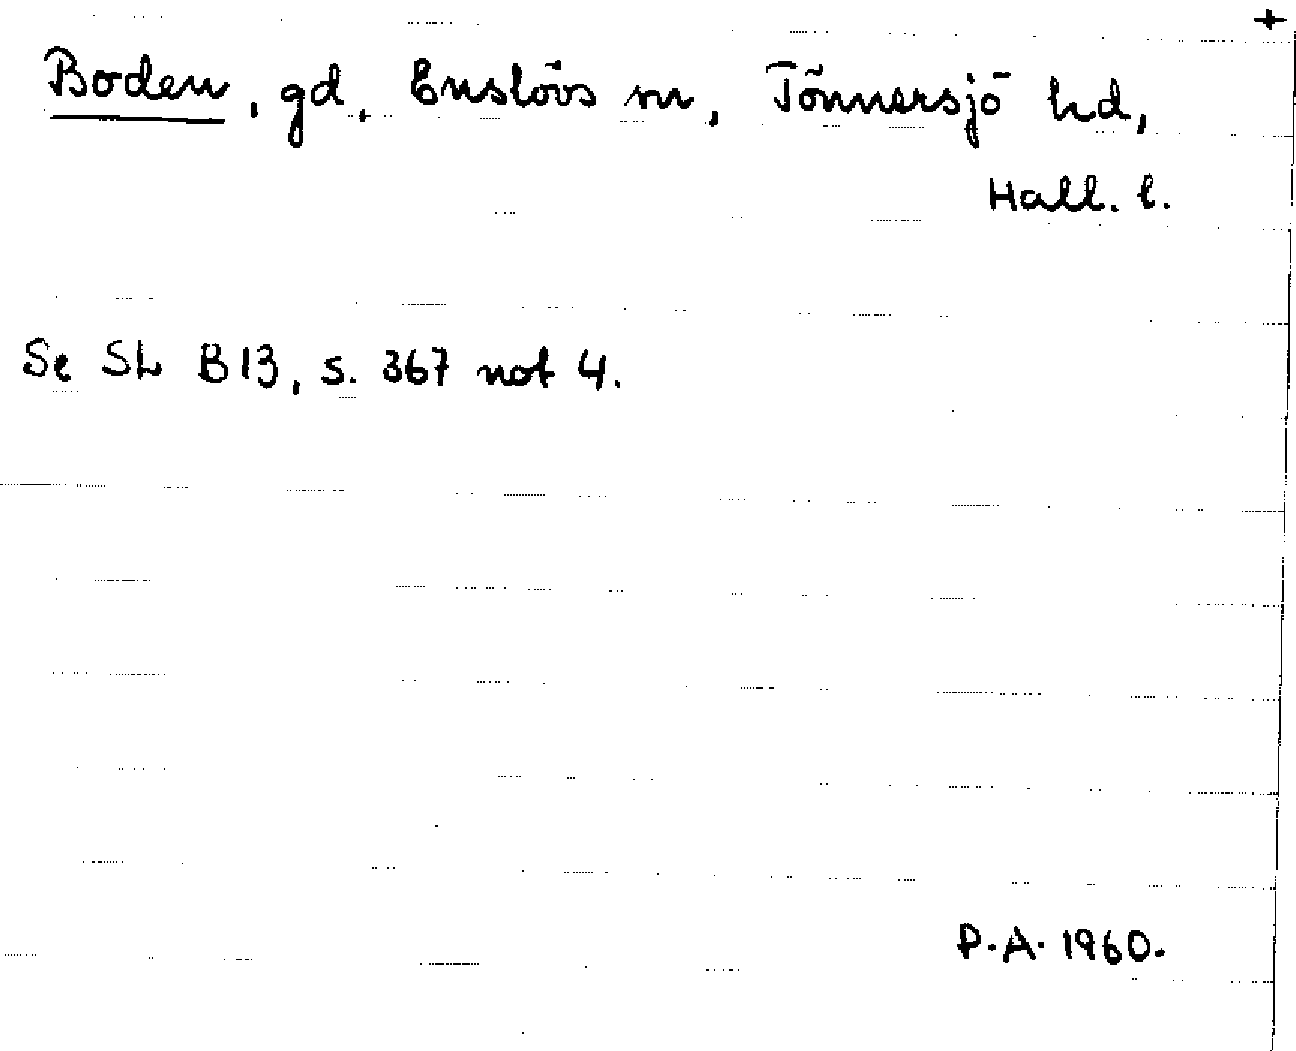 +
Boden, gd, Enslövs sn, Tönnersjö hd,
Hall. l.
Se SL B13, s. 367 not 4.
P.A. 1960.